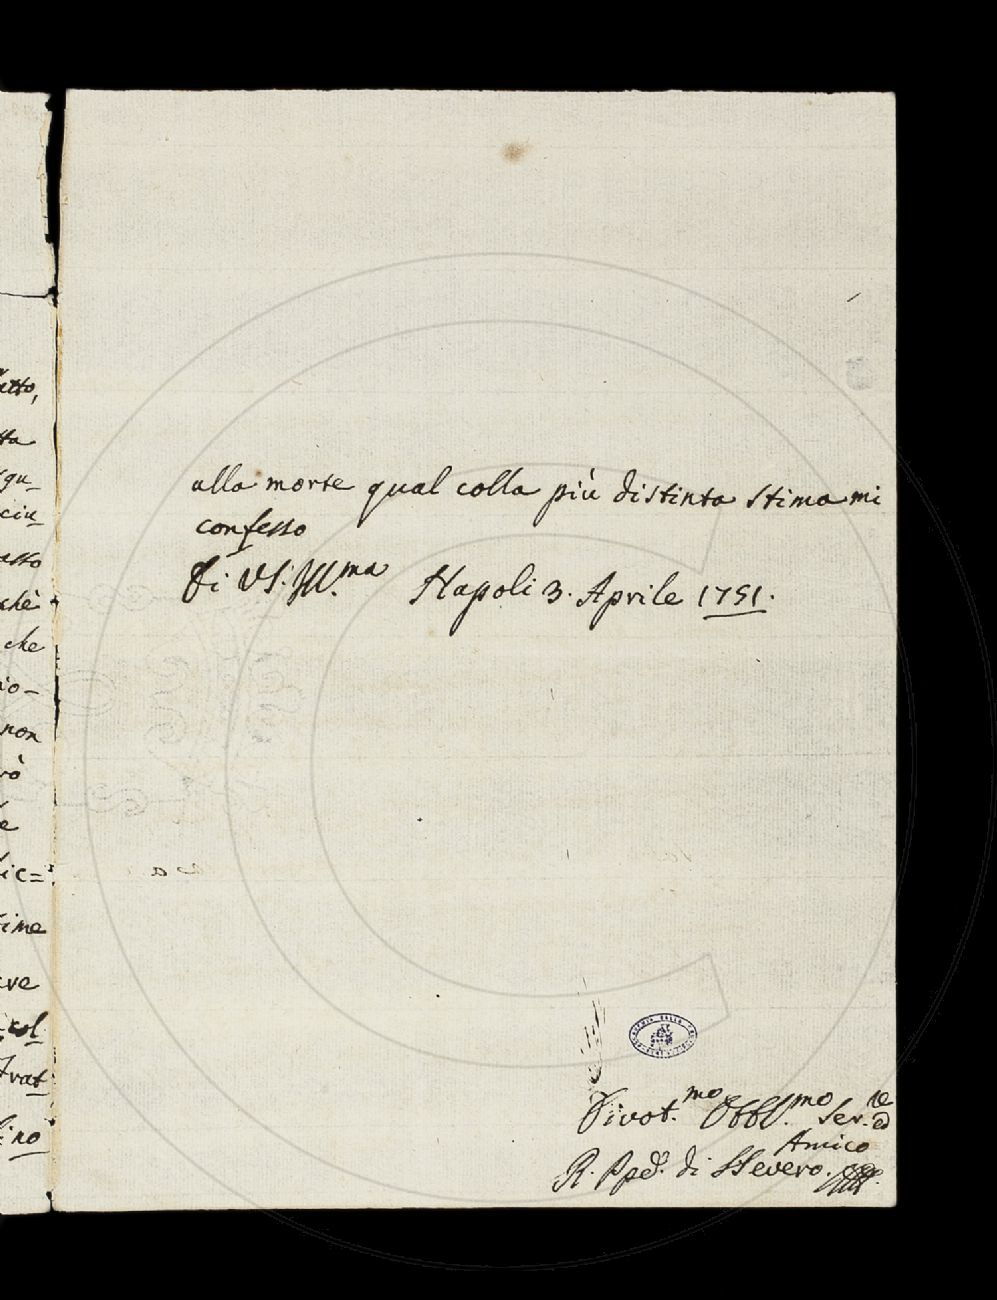 atto,
tta
qu_
ciu_
atto
chè
che
io-
non
rò
e
ic=
ime
ve
col
trat
ino
alla morte qual colla più distinta stima mi
confesso
Di VS. Ill.ma Napoli 3. Aprile 1751.
Divot.mo Obbl.mo Ser.re ed
Amico
R. Ppe di SSevero.